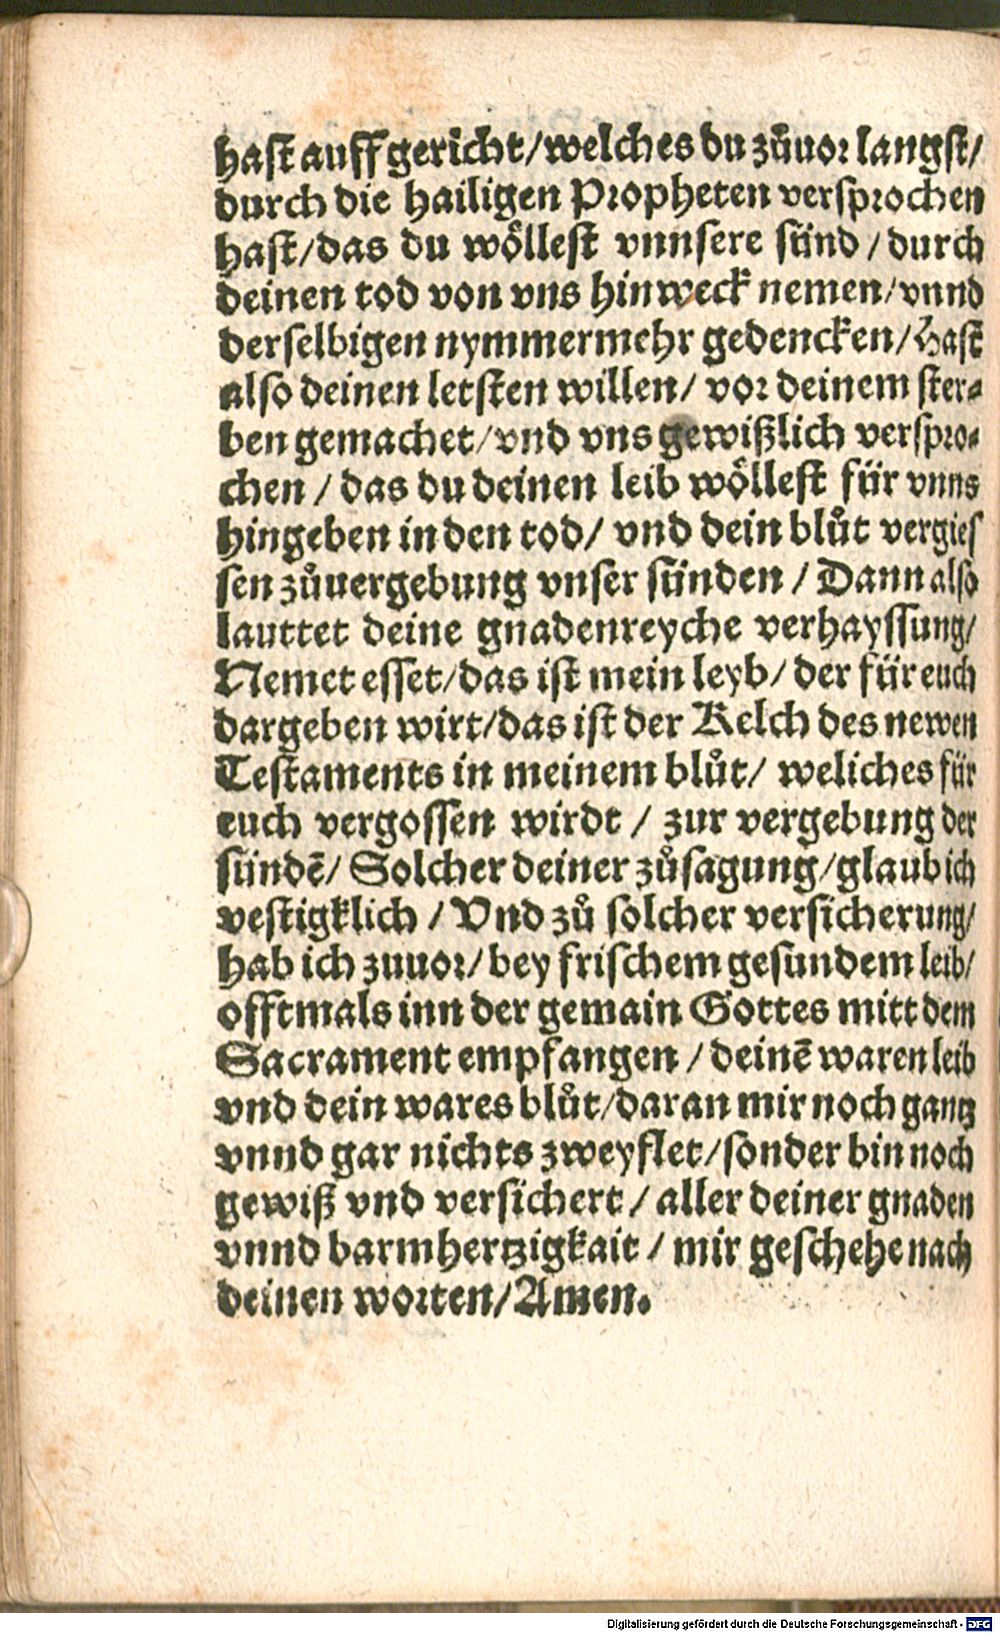 hast auffgericht/welches du zůuor langst/
durch die hailigen Propheten versprochen
hast/das du wöllest vnnsere sünd / durch
deinen tod von vns hinweck nemen/vnnd
derselbigen nymmermehr gedencken/Hast
also deinen letsten willen/ vor deinem ster⸗
ben gemachet/vnd vns gewißlich verspro⸗
chen / das du deinen leib wöllest für vnns
hingeben in den tod/ vnd dein blůt vergies
sen zůuergebung vnser sünden / Dann also
lauttet deine gnadenreyche verhayssung/
Nemet esset/das ist mein leyb/ der für euch
dargeben wirt/das ist der Kelch des newen
Testaments in meinem blůt/ weliches für
euch vergossen wirdt / zur vergebung der
sündē/ Solcher deiner zůsagung/glaub ich
vestigklich / Vnd zů solcher versicherung/
hab ich zuuor/bey frischem gesundem leib/
offtmals inn der gemain Gottes mitt dem
Sacrament empfangen / deinē waren leib
vnd dein wares blůt/daran mir noch gantz
vnnd gar nichts zweyflet/sonder bin noch
gewiß vnd versichert / aller deiner gnaden
vnnd barmhertzigkait / mir geschehe nach
deinen worten/Amen.
Digitalisierung gefördert durch die Deutsche Forschungsgemeinschaft - DFG